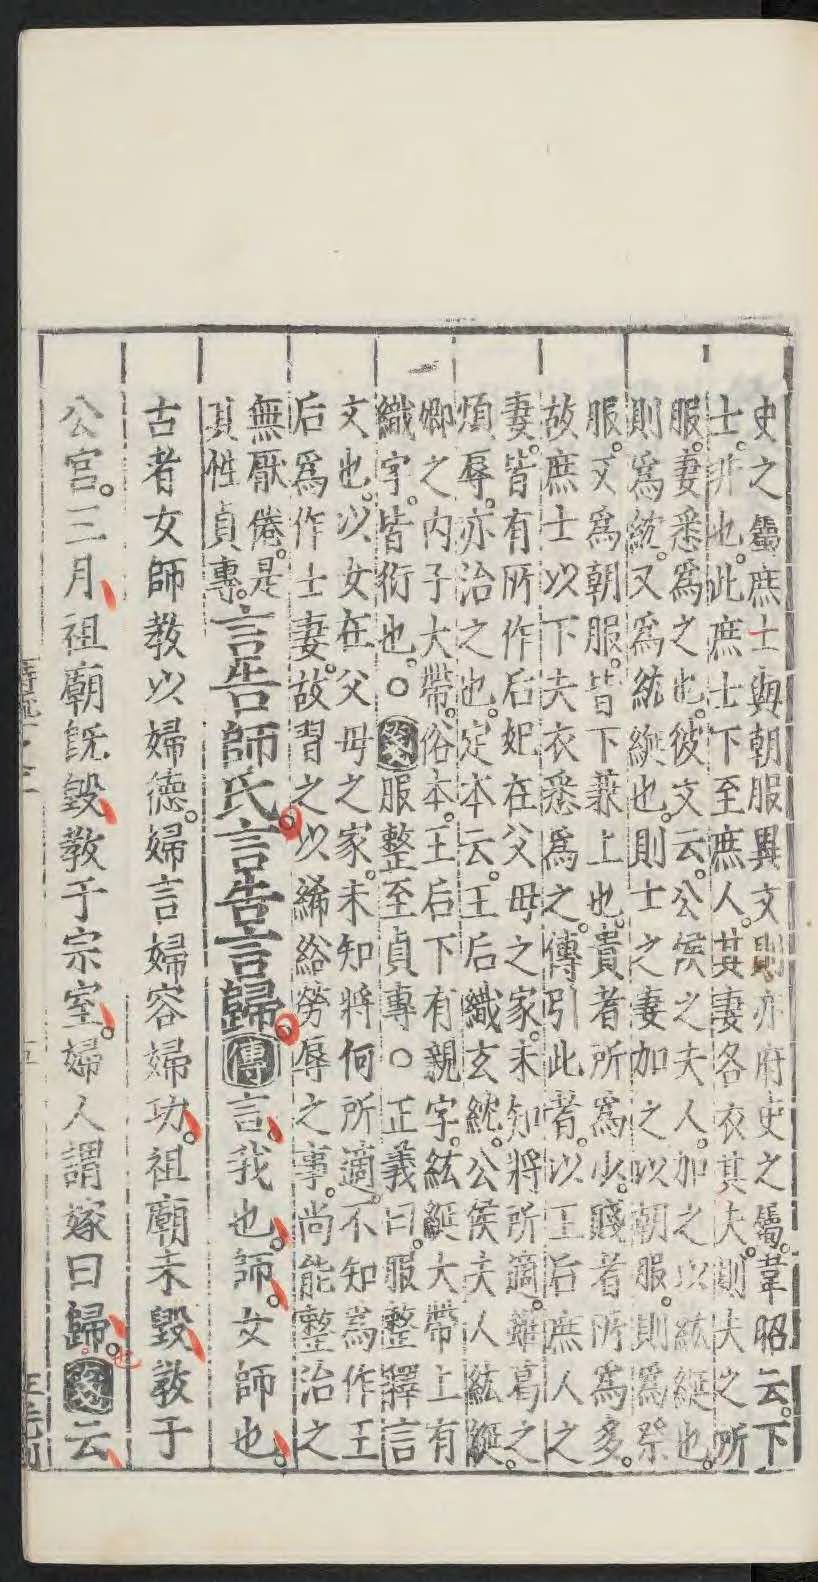 史之屬庶士與朝服異文則亦府史之屬。韋昭云。下
士。非也。此庶士下至庶人。其妻各衣其夫。則夫之所
服。妻悉爲之也。彼文云。公侯之夫人。加之以紘綖也。
則爲紞。又爲紘綖也。則士之妻加之以朝服。則爲祭
服。又爲朝服。皆下兼上也。貴者所爲少。賤者所爲多。
故庶士以下夫衣悉爲之。傳引此者。以王后庶人之
妻。皆有所作后妃在父母之家。未知將所適。雖葛之
煩辱。亦治之也。定本云。王后織玄紞。公侯夫人紘綖。
卿之内子大帶。俗本。王后下有親字。紘綖大帶上有
織字。皆衍也。○箋服整至貞專○正義曰。服整釋言
文也。以女在父母之家。未知將何所適。不知爲作王
后爲作士妻。故習之以絺綌勞辱之事。尚能整治之
無厭倦。是
其性貞專。
言告師氏。言告言歸。傳言、我也。師、女師也。
古者女師教以婦德。婦言婦容婦功。祖廟未毀、教于
公宮。三月、祖廟既毀、教于宗室。婦人謂嫁曰歸。也箋云